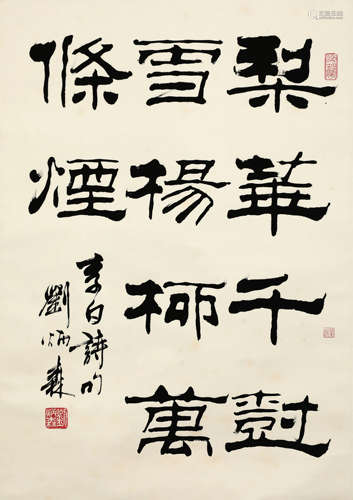 梨華千樹
雪楊柳萬
條煙
李白詩句
劉炳森